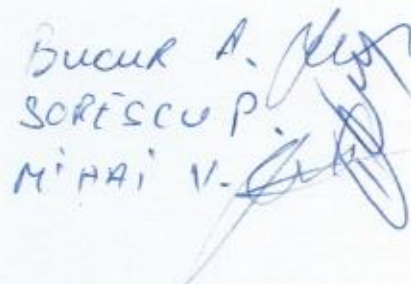 BUCUR A.
SORESCU P.
MIHAI V.